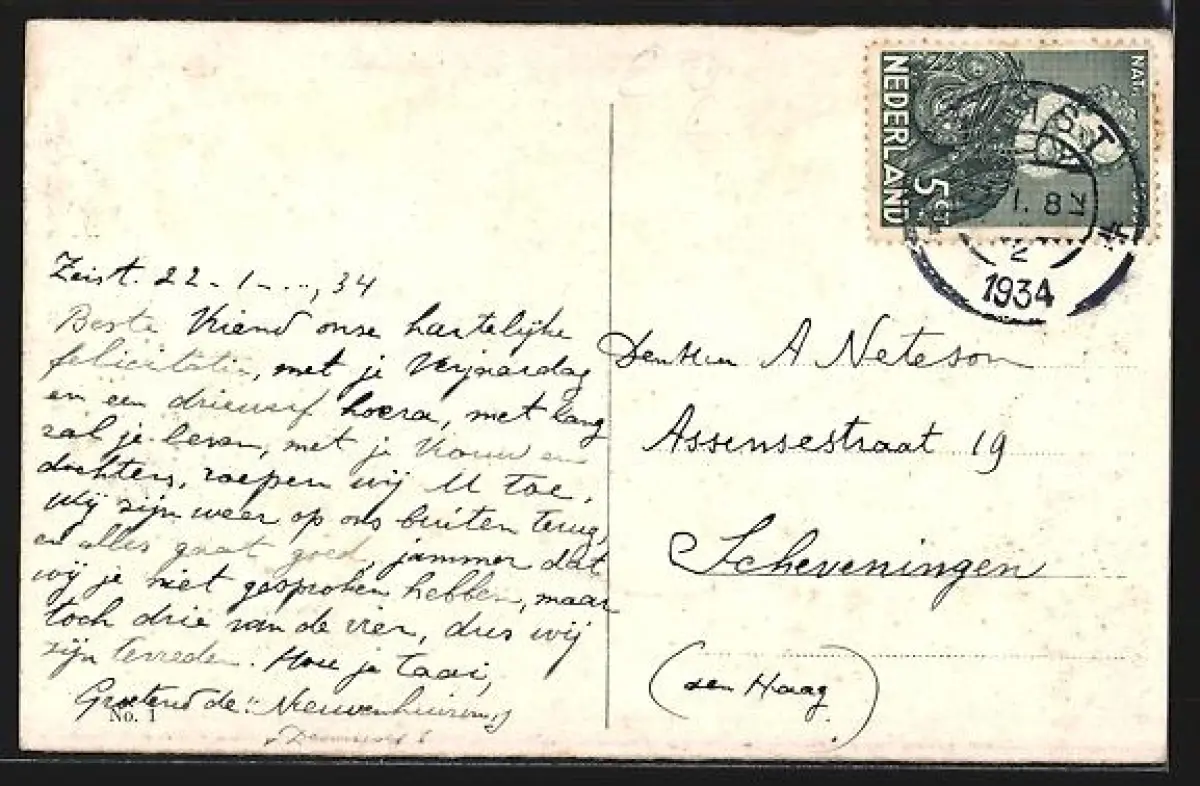 NEDERLAND
5 ct
NAT.
1.8
2
1934
Zeist. 22-1-..., 34
Beste Vriend onse hartelijke
felicitatie, met je Verjaardag
en een drieusif hoera, met lang
zal je leven, met je Vrouw en
dochters, roepen wij U toe.
Wij zijn weer op ons buiten terug,
en alles gaat goed, jammer dat
wij je niet gesproken hebben, maar
toch drie van de vier, dus wij
zijn tevreden. Hou je taai,
Groetend de: Nieuwenhuizen
No. 1
Den Heer A Neteson
Assensestraat 19
Scheveningen
(den Haag)